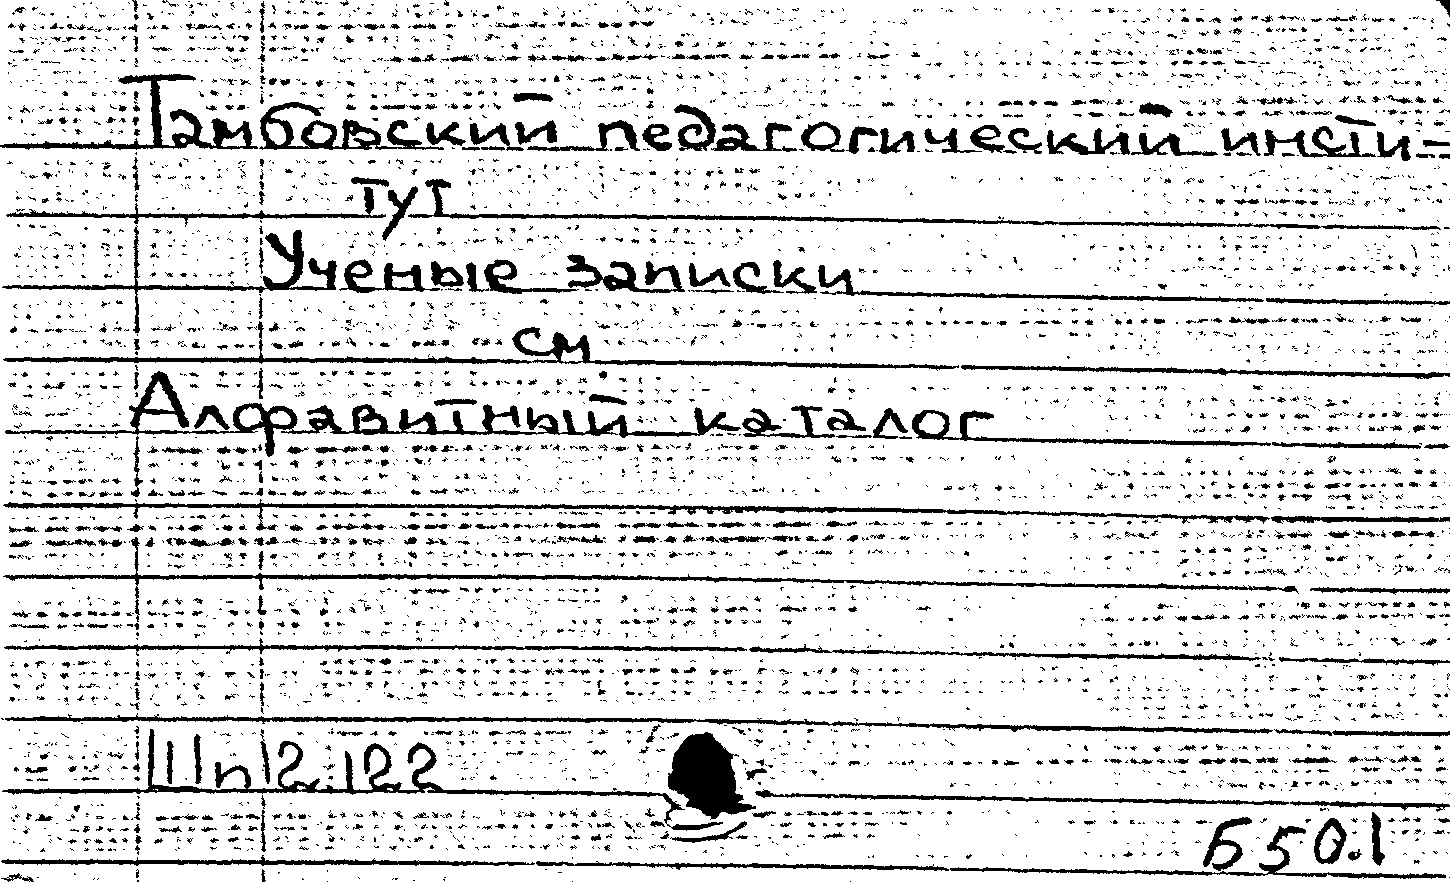 Тамбовский педагогический инсти-
тут
Ученые записки
см.
Алфавитный каталог
Шп12.122
Б50.1